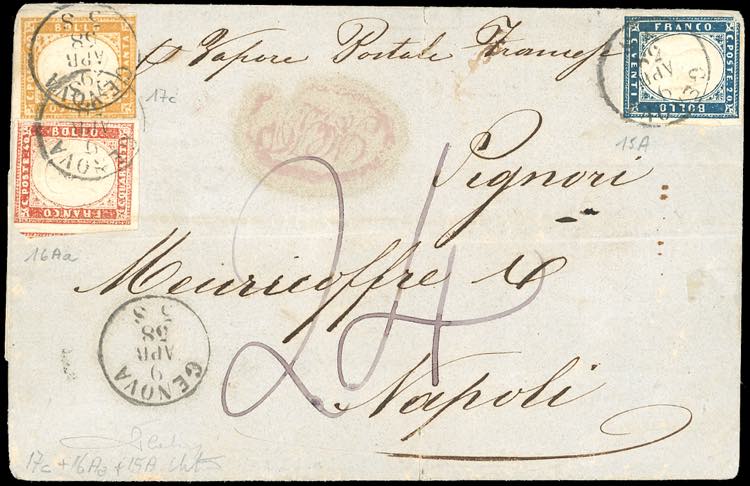 p Vapore Postale Francese
Signori
Meuricoffre &
Napoli
24
BOLLO
GENOVA
9
APR
58
S
17c
BOLLO
C. POSTE 40
C. QUARANTA
FRANCO
GENOVA
16Aa
FRANCO
C. POSTE 20
C. VENTI
BOLLO
9
APR
15A
GENOVA
9
APR
58
S
17c + 16Aa + 15A